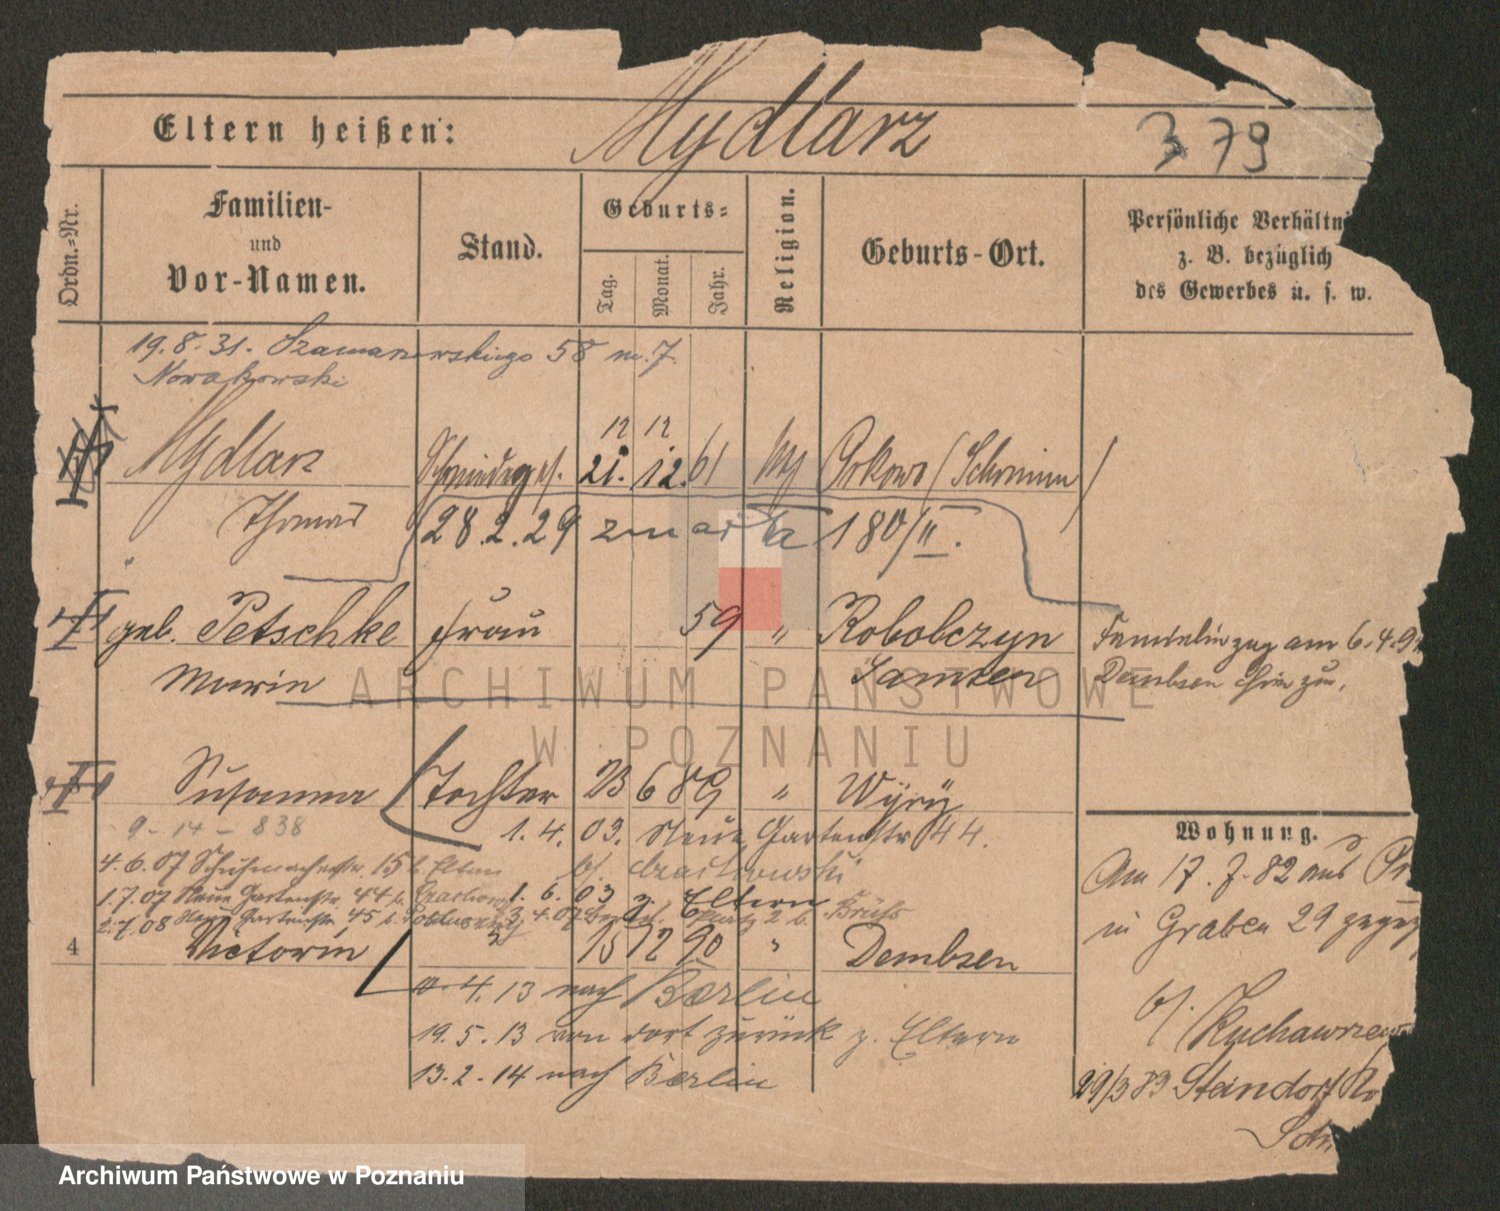 Eltern heißen:
Mydlarz
379
Ordn.-Nr.
Familien-
und
Vor-Namen.
Stand.
Geburts-
Tag.
Monat.
Jahr.
Religion.
Geburts-Ort.
Persönliche Verhältni
z. B. bezüglich
des Gewerbes u. s. w.
19.8.31. Szamarzewskiego 58 m. 7.
Nowakowski
12 12
Mydlarz
21. 12. 61
Thomas
28.2.29 zmarła 180/II.
geb. Petschke Frau 59 " Robobczyn
Marie
Samter
am 6.4.9
Dembsen
Susanna Tochter 23 6 89 " Wyry
9-14-838
1.4.03. Neue Gartenstr 44.
4.6.07 Schuhmacherstr. 15 b. Eltern
1.7.07 Neue Gartenstr. 44 b.
1.6.03 z. Eltern
2.7.08 Neue Gartenstr. 45 b.
4 Victorin 15 12 90 " Dembsen
4.13 nach Berlin
19.5.13 von dort zurück z. Eltern
13.2.14 nach Berlin
Wohnung.
Am 17.7.82 aus
in Graben 29
29/3 89 Steindorf
Archiwum Państwowe
w Poznaniu
Archiwum Państwowe w Poznaniu